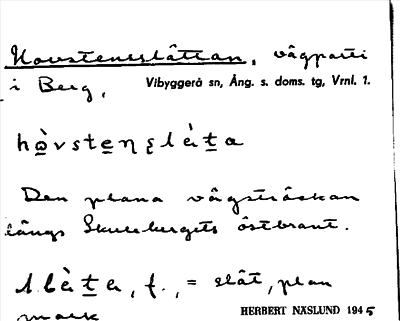 Hovstensslåttan, vägparti
i Berg, Vibyggerå sn, Ång. s. doms. tg, Vrnl. 1.
Den plana vägsträckan
längs Skulebergets östbrant.
f., = slät, plan
mark HERBERT NÄSLUND 1945